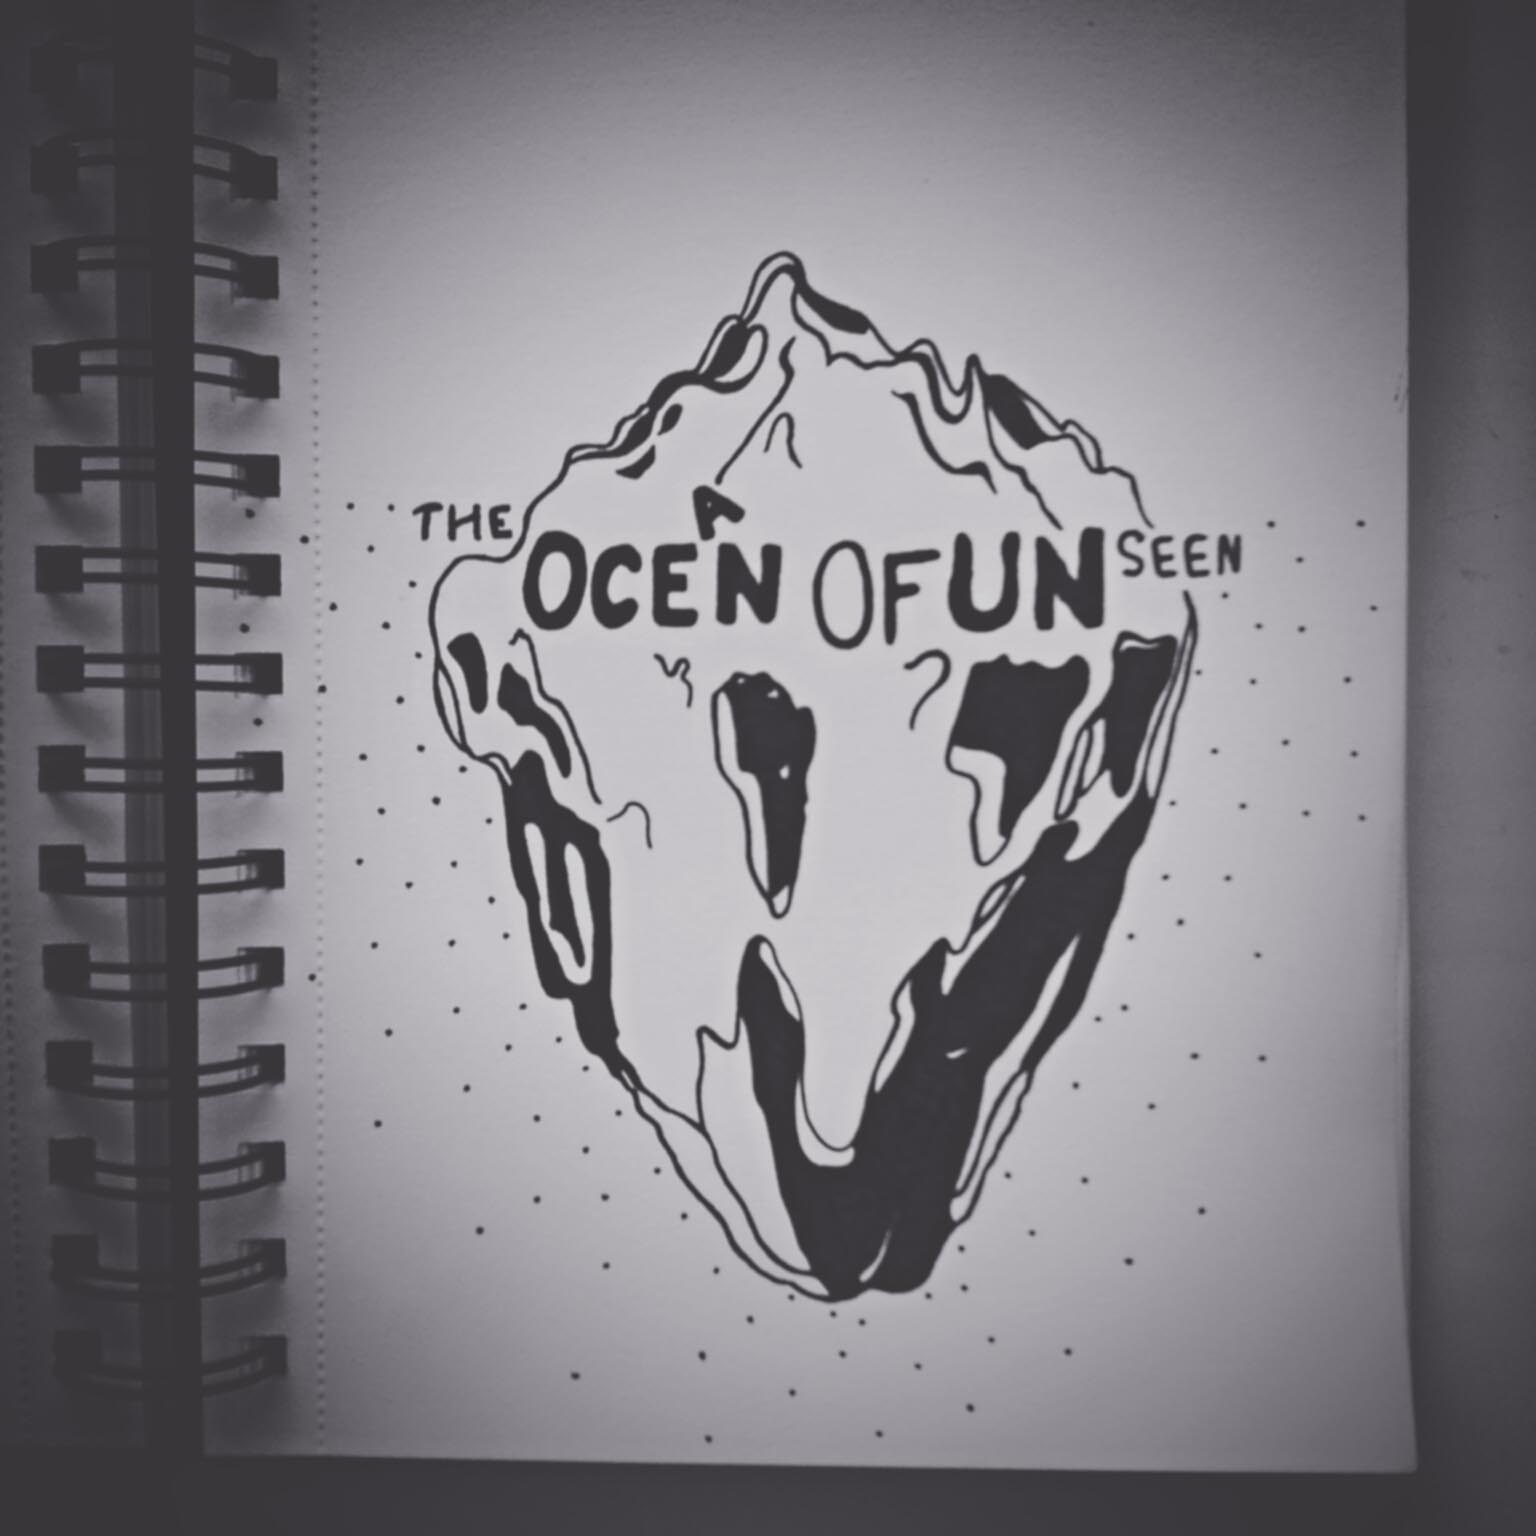 THE OCEAN OF UNSEEN